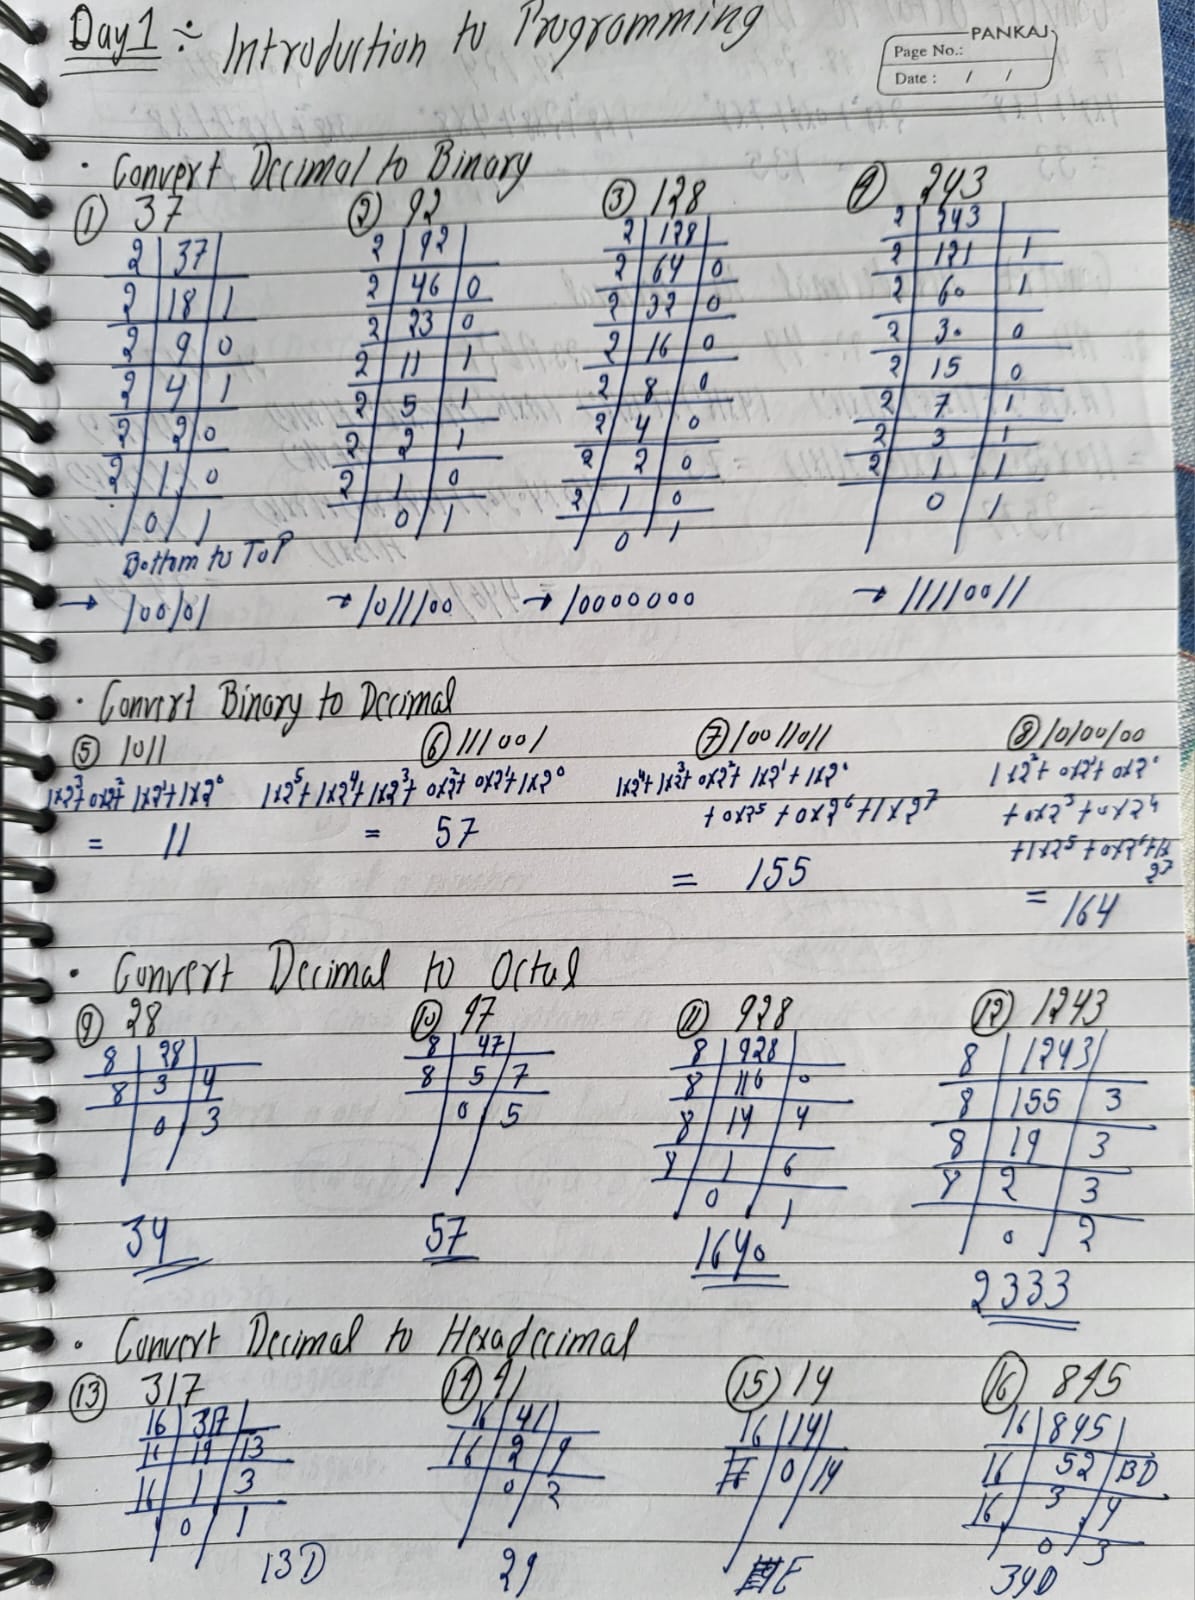 Day 1 :- Introduction to Programming
PANKAJ
Page No.:
Date : / /
· Convert Decimal to Binary
① 37 ② 92 ③ 128 ④ 243
2 | 37 |
2 | 18 | 1
2 | 9 | 0
2 | 4 | 1
2 | 2 | 0
2 | 1 | 0
0 | 1
Bottom to ToP
→ 100101
2 | 92 |
2 | 46 | 0
2 | 23 | 0
2 | 11 | 1
2 | 5 | 1
2 | 2 | 1
2 | 1 | 0
0 | 1
→ 1011100
2 | 128 |
2 | 64 | 0
2 | 32 | 0
2 | 16 | 0
2 | 8 | 0
2 | 4 | 0
2 | 2 | 0
2 | 1 | 0
0 | 1
→ 10000000
2 | 243 |
2 | 121 | 1
2 | 60 | 1
2 | 30 | 0
2 | 15 | 0
2 | 7 | 1
2 | 3 | 1
2 | 1 | 1
0 | 1
→ 11110011
· Convert Binary to Decimal
⑤ 1011
1x2³+ 0x2²+ 1x2¹+1x2⁰
= 11
⑥ 111001
1x2⁵+1x2⁴+1x2³+ 0x2²+ 0x2¹+1x2⁰
= 57
⑦ 10011011
1x2⁴+1x2³+ 0x2²+ 1x2¹+1x2⁰
+ 0x2⁵ + 0x2⁶ +1x2⁷
= 155
⑧ 10100100
1x2²+ 0x2¹+ 0x2⁰
+ 0x2³ + 0x2⁴
+1x2⁵ + 0x2⁶ +1x
2⁷
= 164
· Convert Decimal to Octal
⑨ 28
8 | 28 |
8 | 3 | 4
0 | 3
34
⑩ 47
8 | 47 |
8 | 5 | 7
0 | 5
57
⑪ 928
8 | 928 |
8 | 116 | 0
8 | 14 | 4
8 | 1 | 6
0 | 1
1640
⑫ 1243
8 | 1243 |
8 | 155 | 3
8 | 19 | 3
8 | 2 | 3
0 | 2
2333
· Convert Decimal to Hexadecimal
⑬ 317
16 | 317 |
16 | 19 | 13
16 | 1 | 3
0 | 1
13D
⑭ 41
16 | 41 |
16 | 2 | 9
0 | 2
29
⑮ 14
16 | 14 |
0 | 14
E
⑯ 845
16 | 845 |
16 | 52 | 13D
16 | 3 | 4
0 | 3
34D